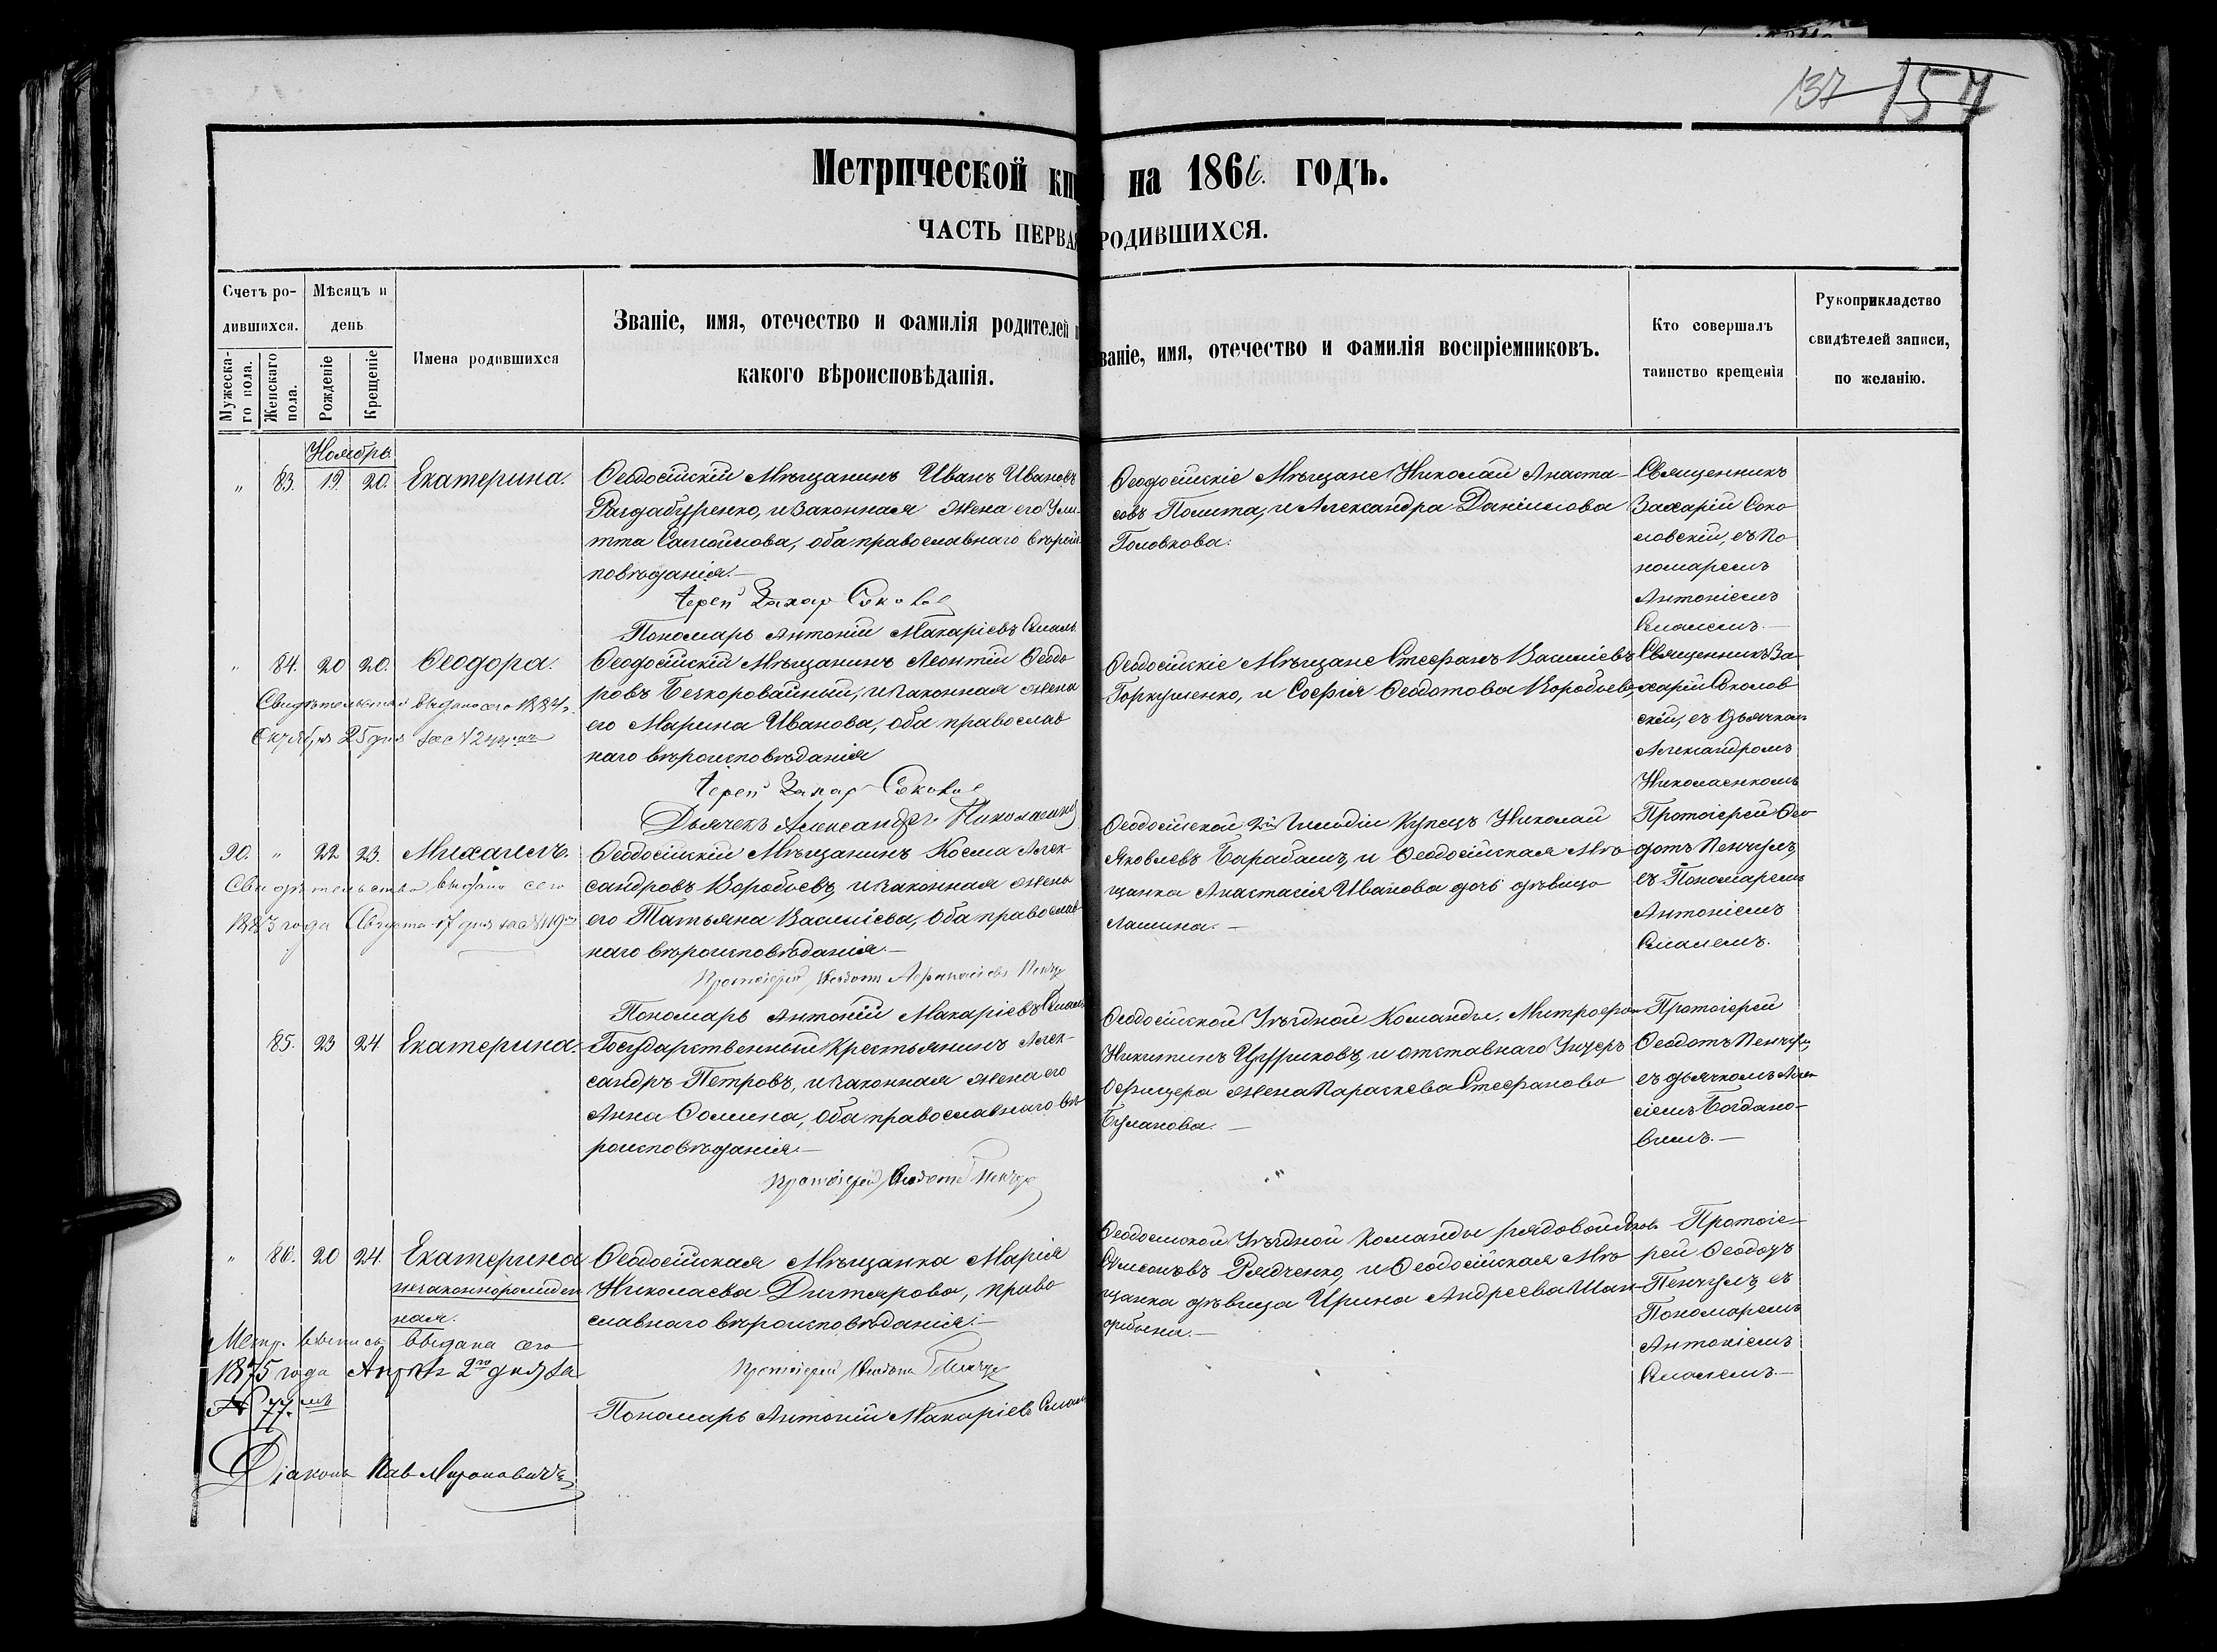 137 157
Метрической кни на 1866. годъ.
ЧАСТЬ ПЕРВАЯ РОДИВШИХСЯ.
Счетъ родившихся.
Мужескаго пола.
Женскаго пола.
Мѣсяцъ и день
Рожденіе
Крещеніе
Имена родившихся
Званіе, имя, отечество и фамилія родителей и
какого вѣроисповѣданія.
Званіе, имя, отечество и фамилія воспріемниковъ.
Кто совершалъ
таинство крещенія
Рукоприкладство
свидѣтелей записи,
по желанію.
Ноябрь
" 83. 19. 20. Екатерина.
Ѳеодосійскій Мѣщанинъ Иванъ Ивановъ
и законная жена его Ули-
тта Самойлова, оба православнаго вѣроис-
повѣданія.—
Іерей Захар Соколов
Пономарь Антоній Макаріевъ
Ѳеодосійскіе Мѣщане Николай Анаста-
совъ Полита, и Александра Даніилова
Головкова.
Священникъ
Захарій Соко
ловскій, съ По
номаремъ
Антоніемъ
" 84. 20 20. Ѳеодора.
Свидѣтельство выдано сего 1884 г.
Октября 25 дня за №
Ѳеодосійскій Мѣщанинъ Леонтій Ѳеодо
ровъ Безкоровайный, и законная жена
его Марина Иванова, оба православ
наго вѣроисповѣданія
Іерей Захар Соколов
Дьячекъ Александръ Николаенко
Ѳеодосійскіе Мѣщане Стефанъ Васильевъ
Горкушенко, и Софія Ѳеодотова Воробьева
Священникъ За-
харій Соколов
скій, съ дьячкомъ
Александромъ
Николаенкомъ
90. " 22 23. Михаилъ.
Свидѣтельство выдано сего
1883 года Августа 17 дня за № 119
Ѳеодосійскій Мѣщанинъ Косма Алек-
сандровъ Воробьевъ, и законная жена
его Татьяна Васильева, оба православ-
наго вѣроисповѣданія.—
Протоіерей Ѳеодотъ
Пономарь Антоній Макаріевъ
Ѳеодосійской 2й Гильдіи Купецъ Николай
Яковлевъ Барабашъ, и Ѳеодосійская Мѣ
щанка Анастасія Иванова дочь дѣвица
Лашина.—
Протоіерей Ѳео
дотъ Пенчулъ,
съ Пономаремъ
Антоніемъ
85. 23 24 Екатерина.
Государственный Крестьянинъ Алек-
сандръ Петровъ, и законная жена его
Анна Ѳомина, оба православнаго вѣ-
роисповѣданія.—
Протоіерей Ѳеодотъ Пенчулъ
Ѳеодосійской Уѣздной Команды, Митрофанъ
Никитинъ и отставнаго Унтеръ
Офицера жена Параскева Стефанова
Буланова.—
Протоіерей
Ѳеодотъ Пенчулъ,
съ дьячкомъ Алек
сіемъ Богдано-
вымъ.—
" 86. 20 24. Екатерина
незаконнорожден
ная.
Метр. выпись выдана сего
1875 года Апрѣля 2го дня за
№ 77.мъ
Діаконъ Пав Мироновичъ
Ѳеодосійская Мѣщанка Марія
Николаева Дигтярова, право
славнаго вѣроисповѣданія.—
Протоіерей Ѳеодотъ Пенчулъ
Пономарь Антоній Макаріевъ
Ѳеодосійской Уѣздной Команды рядовой
Рядченко, и Ѳеодосійская Мѣ
щанка дѣвица Ирина Андреева Шан-
дыбина.—
Протоіе-
рей Ѳеодотъ
Пенчулъ, съ
Пономаремъ
Антоніемъ